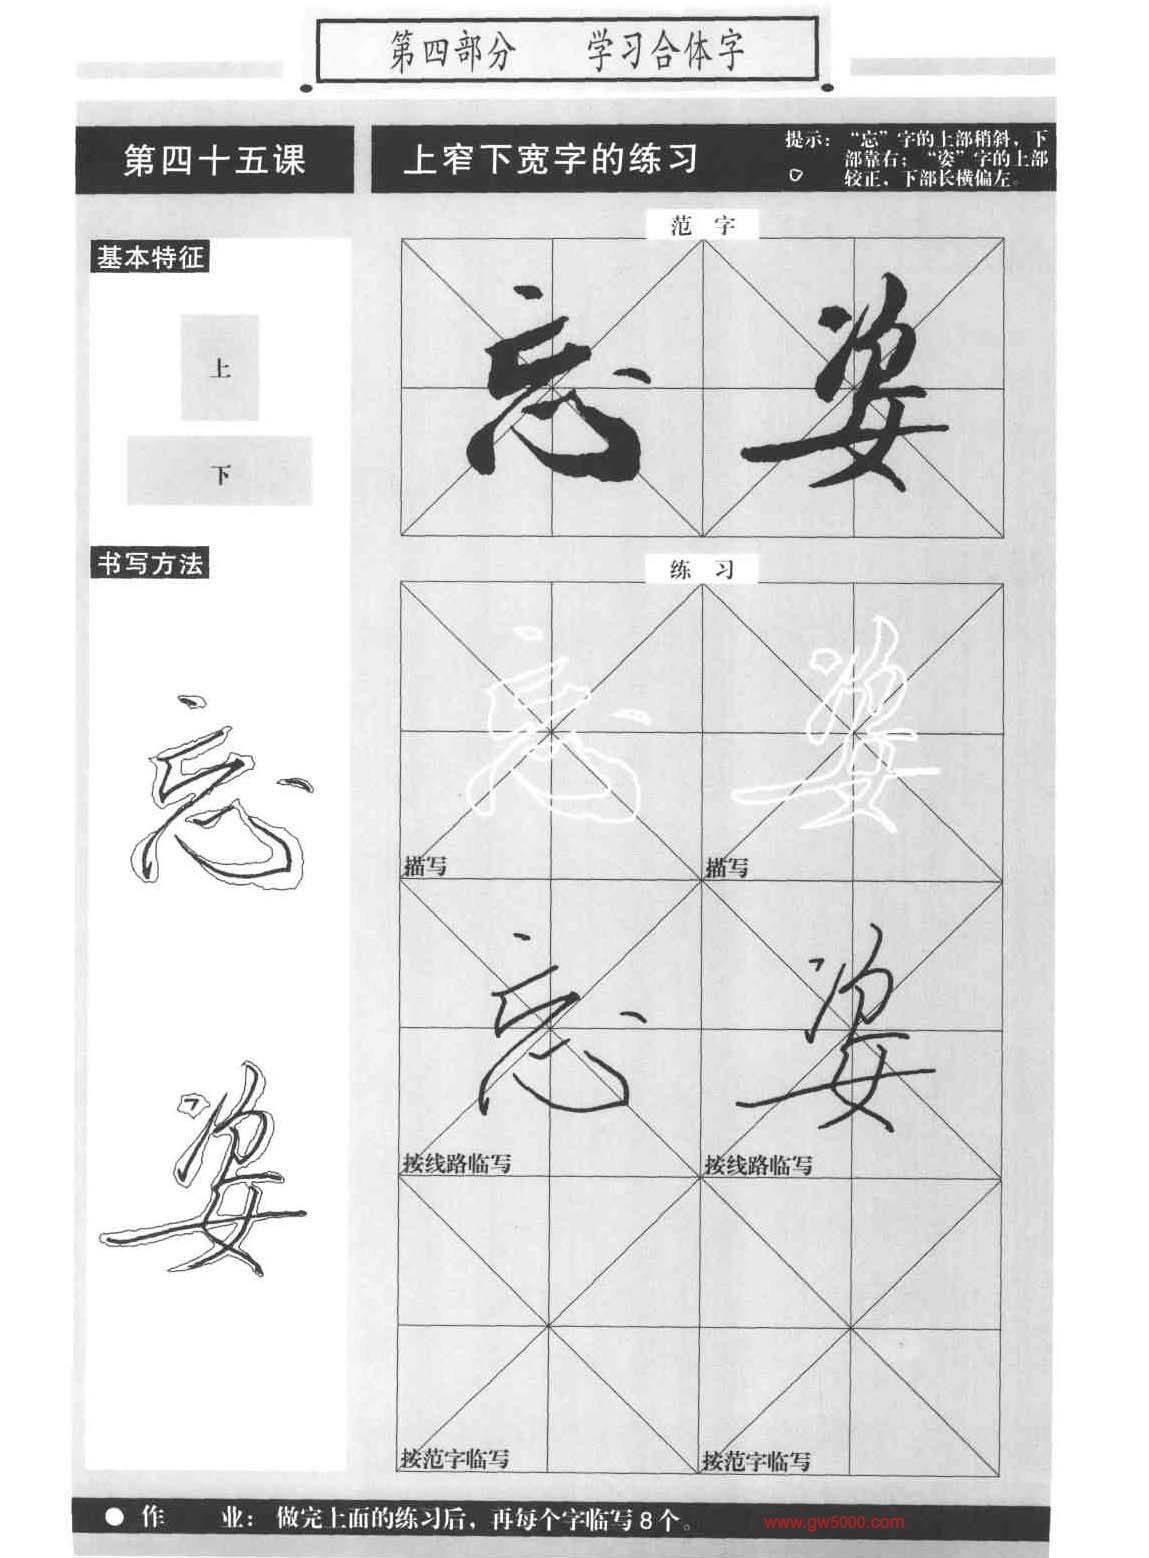 第四部分 学习合体字
第四十五课
上窄下宽字的练习
提示：“忘”字的上部稍斜，下
部靠右；“姿”字的上部
较正，下部长横偏左。
基本特征
上
下
书写方法
忘
姿
范 字
忘 姿
练 习
忘 姿
描写 描写
忘 姿
按线路临写 按线路临写
按范字临写 按范字临写
● 作 业：做完上面的练习后，再每个字临写8个。
www.gw5000.com